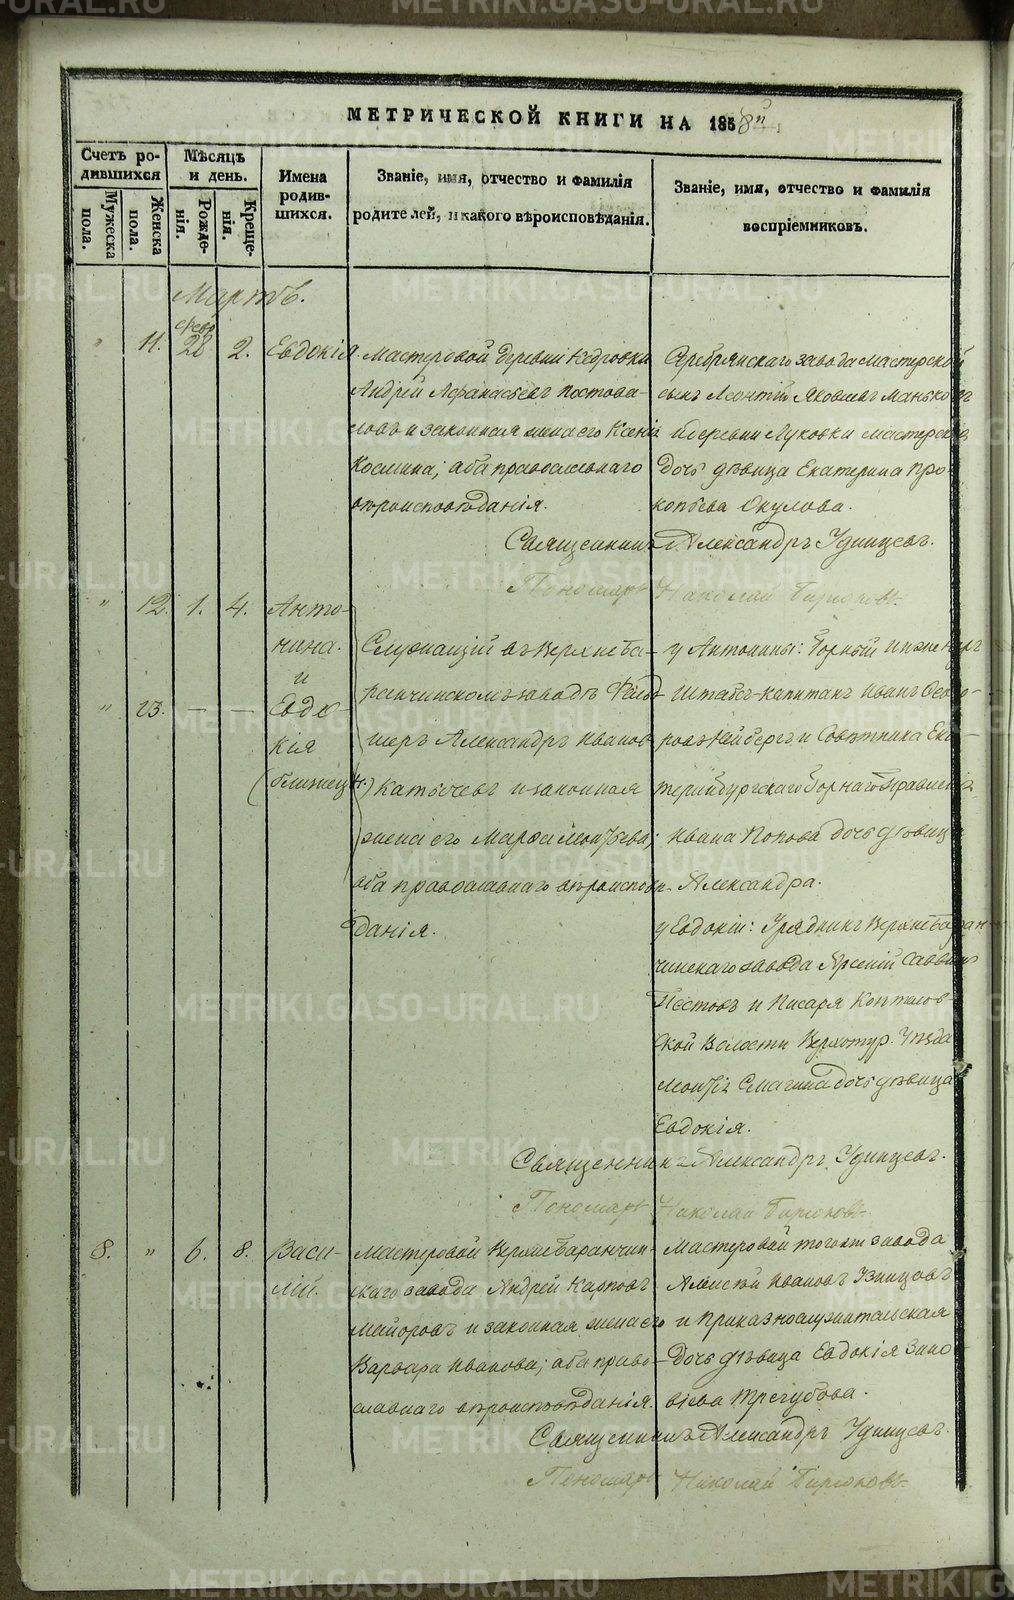 МЕТРИЧЕСКОЙ КНИГИ НА 1858й
Счетъ ро-
дившихся
Мужеска
пола.
Женска
пола.
Мѣсяцъ
и день.
Рожде-
нія.
Креще-
нія.
Имена
родив-
шихся.
Званіе, имя, отчество и фамилія
родителей, и какого вѣроисповѣданія.
Званіе, имя, отчество и фамилія
воспріемниковъ.
Мартъ.
" 11. Февр 28 2. Евдокія.
Мастеровой деревни Кедровки
Андрей Афанасьевъ Постова-
ловъ и законная жена его Ксенія
Космина; оба православнаго
вѣроисповѣданія.
Серебрянскаго завода мастерской
сынъ Леонтій Яковлевъ Маньковъ
и деревни Луковки мастерская
дочь дѣвица Екатерина Про-
копьева Окулова.
Священникъ Александръ Удинцевъ.
Пономарь Николай Бирюковъ
" 12. 1. 4. Анто-
нина.
и
" 13. — — Евдо-
кія
(близнецы.)
Служащій въ Верхнеба-
ранчинскомъ заводѣ Фельд-
шеръ Александръ Иванов
Катычевъ и законная
жена его Марфа Леонтьева;
оба православнаго вѣроисповѣ-
данія.
у Антонины: Горный инженеръ
Штабсъ-капитанъ Иванъ
и Совѣтника Ека-
теринбургскаго Горнаго Правленія
Ивана Попова дочь дѣвица
Александра.
у Евдокіи: Урядникъ Верхнебаран-
чинскаго завода Арсеній Саввинъ
Пестовъ и Писаря Коптелов-
ской Волости Верхотур. Уѣзда
Леонтія Смагина дочь дѣвица
Евдокія.
Священникъ Александръ Удинцевъ.
Пономарь Николай Бирюковъ
8. " 6. 8. Васи-
лій.
Мастеровой Верхнебаранчин-
скаго завода Андрей Карповъ
Маіоровъ и законная жена его
Варвара Иванова; оба право-
славнаго вѣроисповѣданія.
Мастеровой тогожъ завода
Алексѣй Ивановъ
и Приказнослужительская
дочь дѣвица Евдокія Зино-
віева Трегубова.
Священникъ Александръ Удинцевъ.
Пономарь Николай Бирюковъ
METRIKI.GASO-URAL.RU